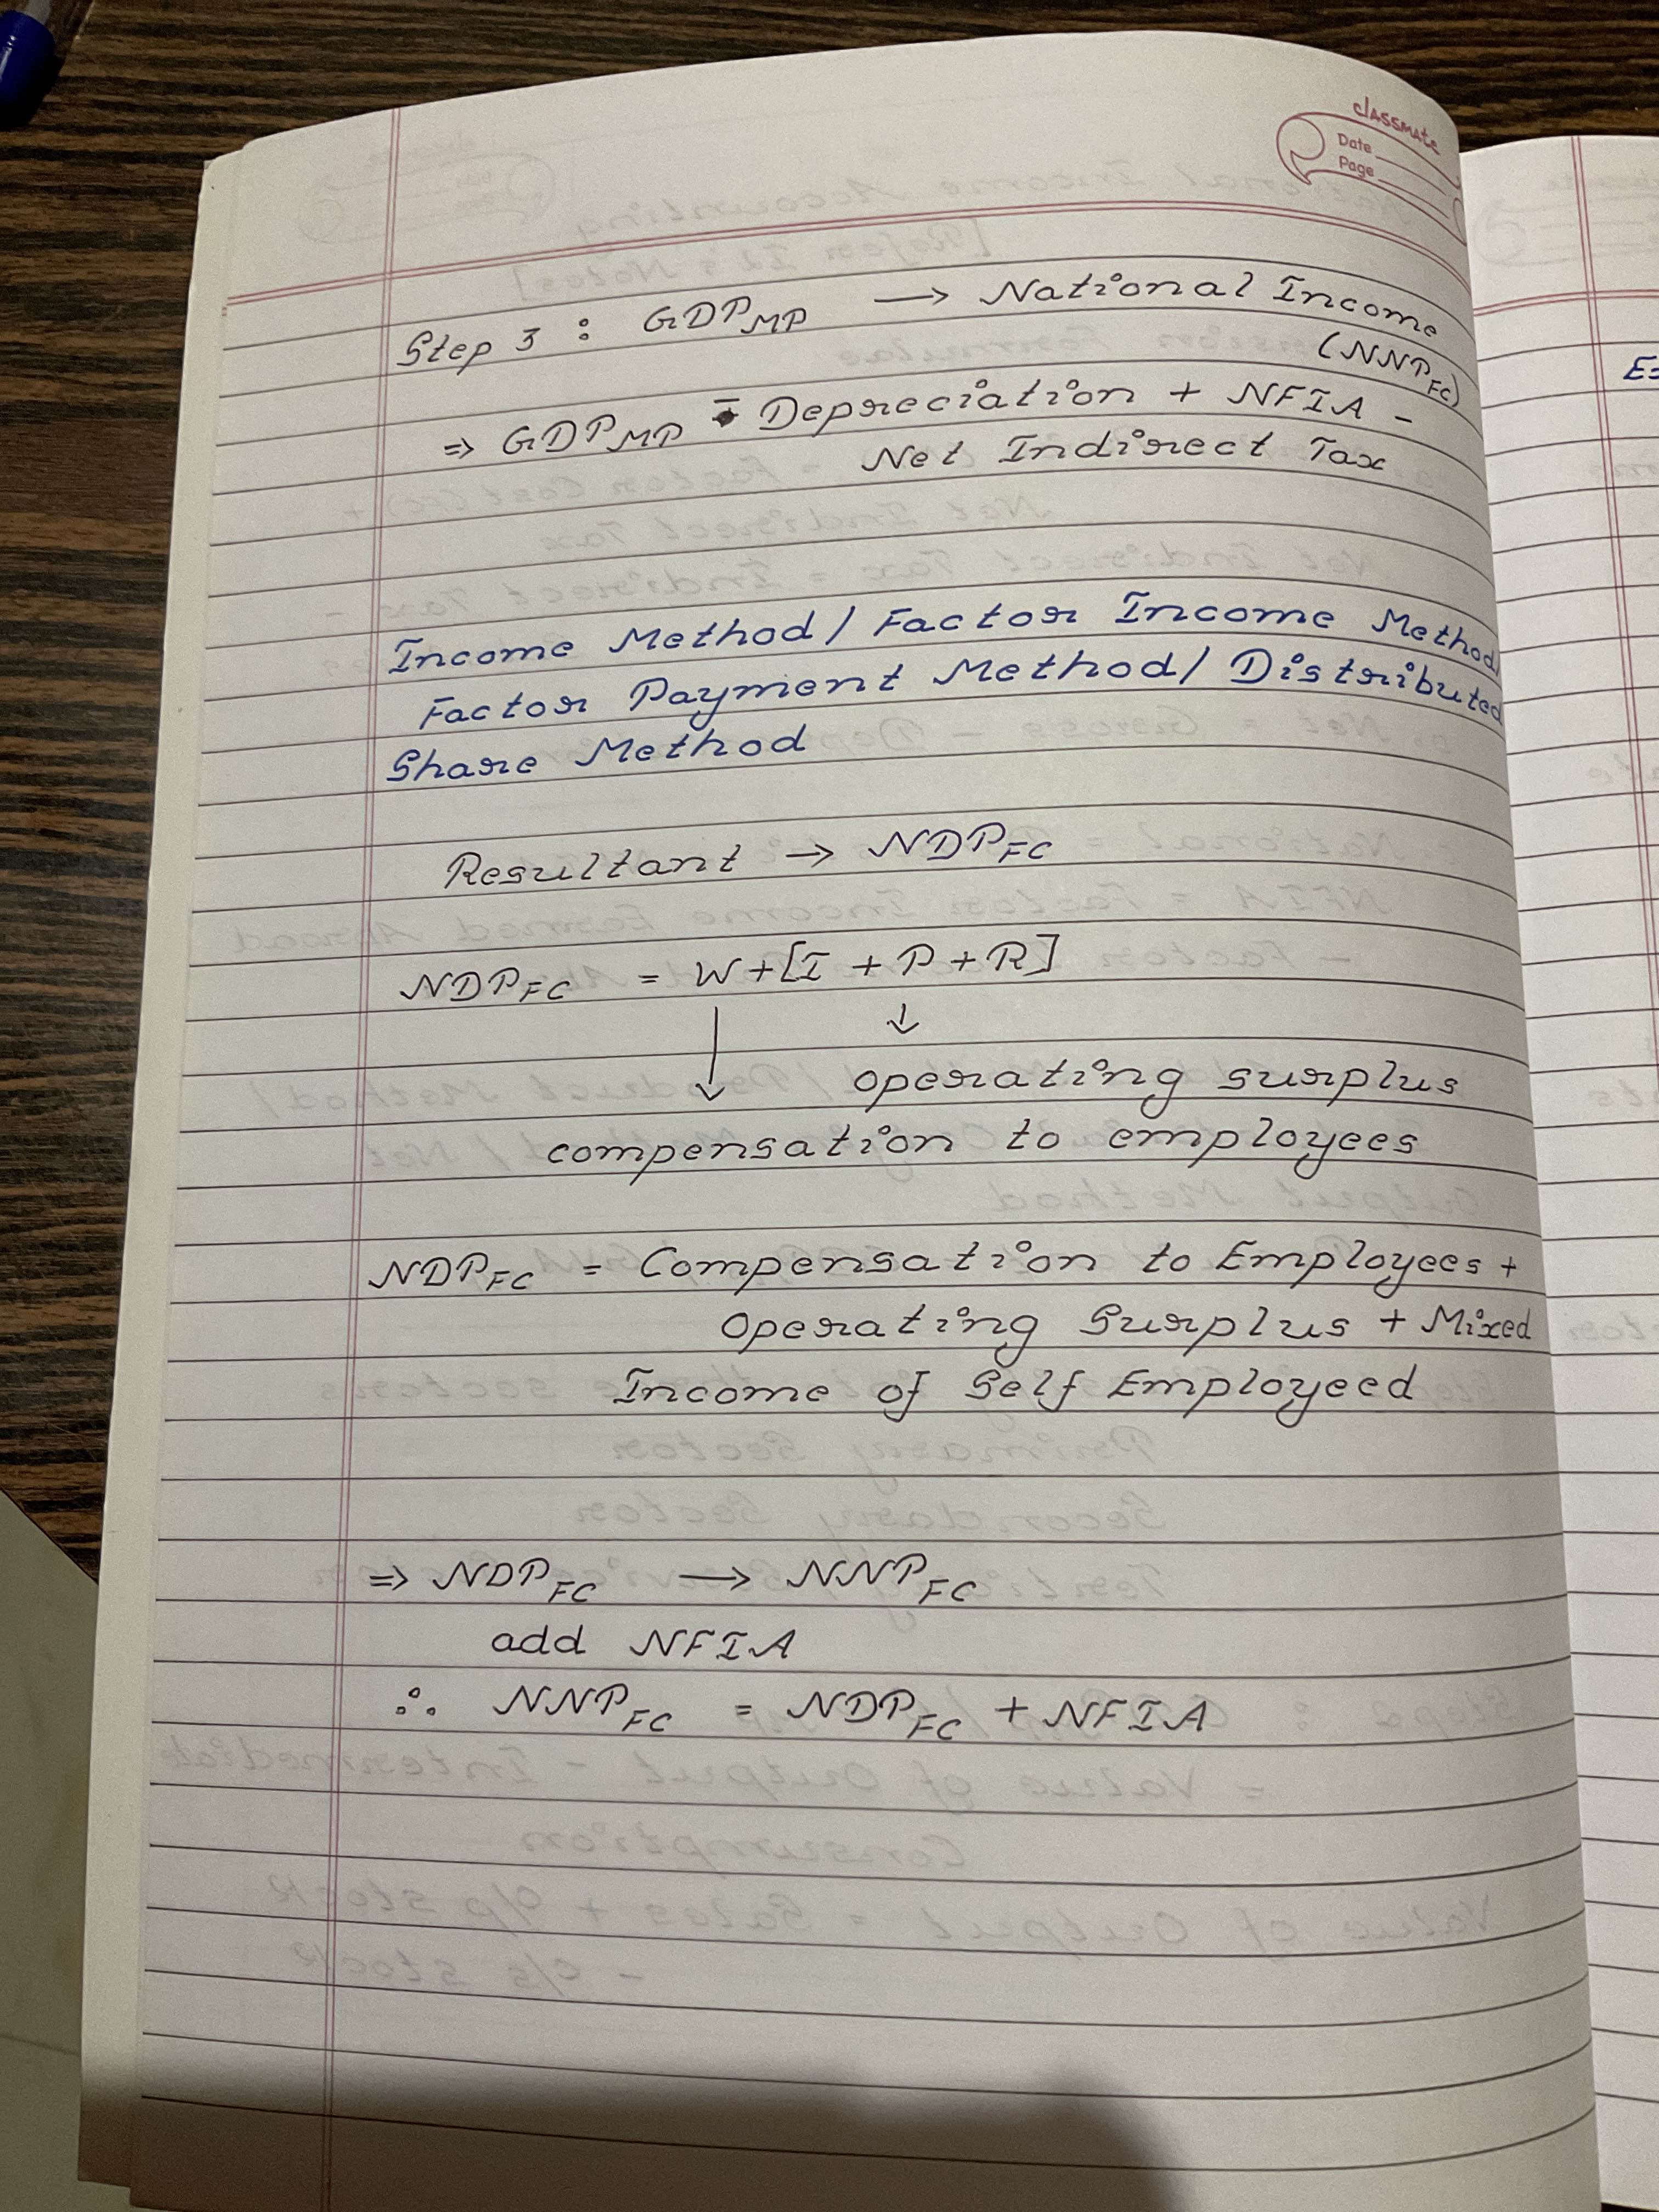 classmate
Date
Page
Step 3 : GDP MP → National Income
(NNP FC)
⇒ GDP MP - Depreciation + NFIA -
Net Indirect Tax
Income Method / Factor Income Method /
Factor Payment Method / Distributed
Share Method
Resultant → NDP FC
NDP FC = W + [I + P + R]
↓ ↓
operating surplus
compensation to employees
NDP FC = Compensation to Employees +
Operating Surplus + Mixed
Income of Self Employeed
⇒ NDP FC → NNP FC
add NFIA
∴ NNP FC = NDP FC + NFIA